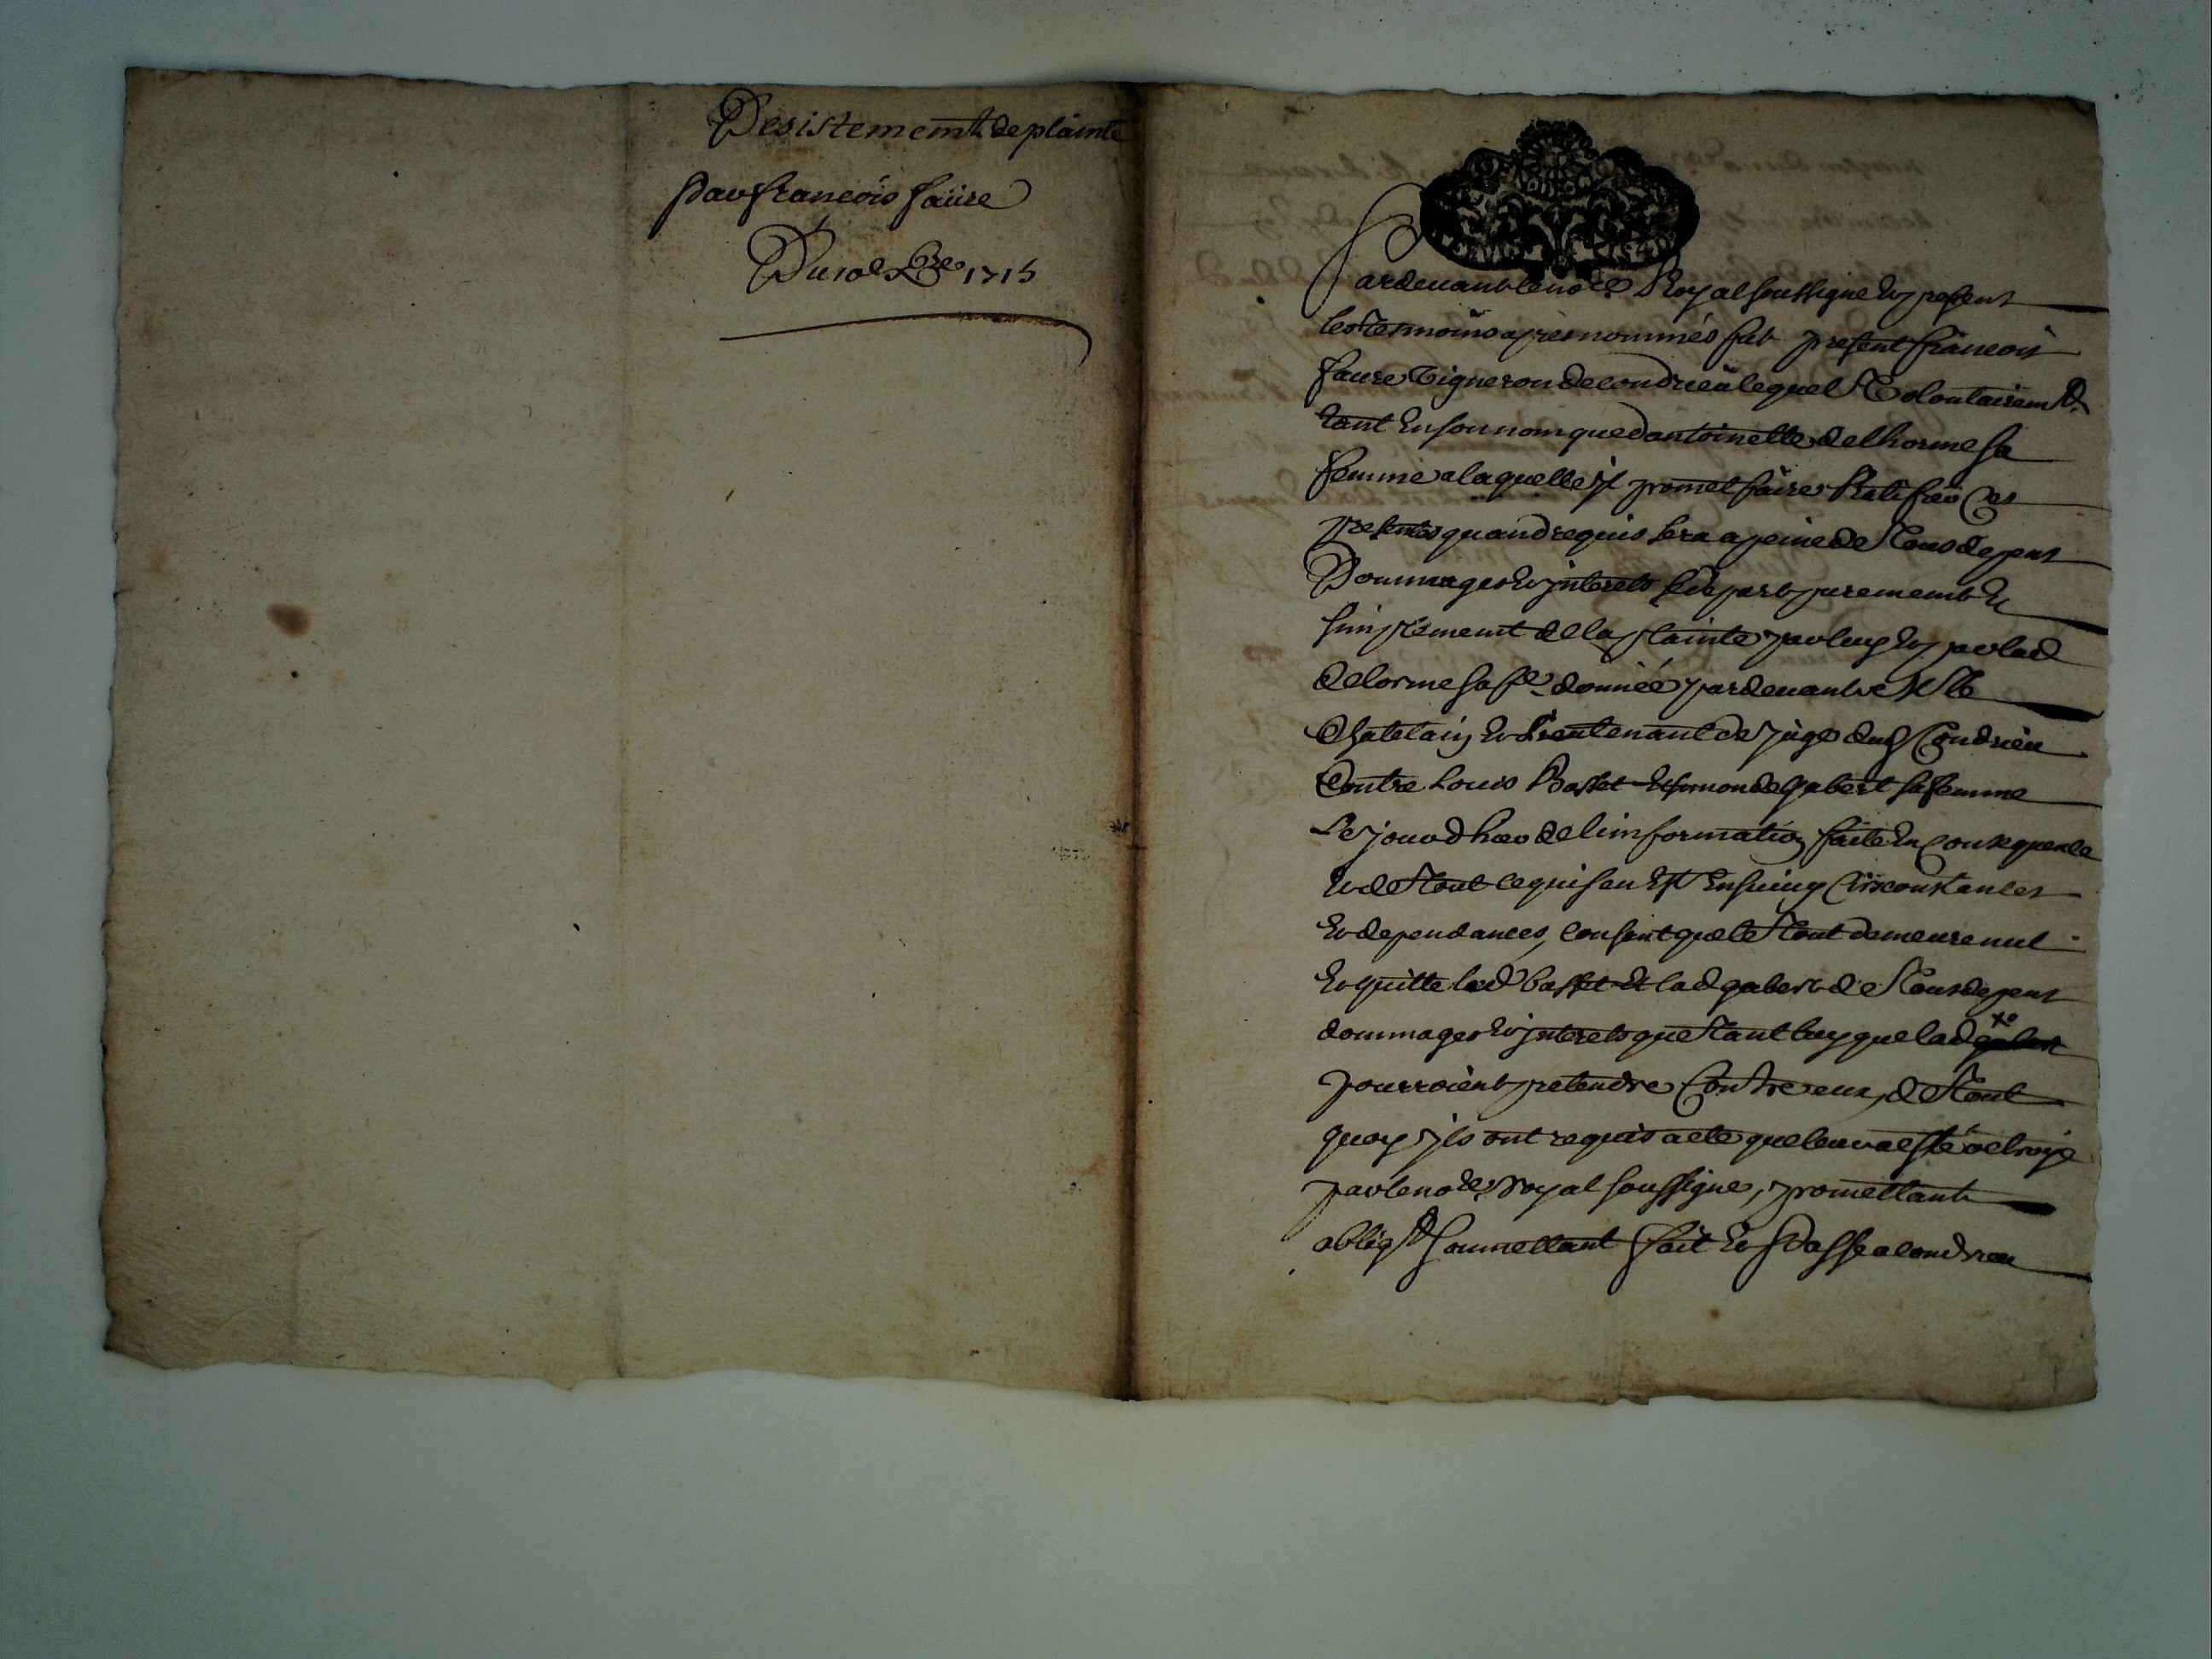 Desistement de plainte
par francois faure
Du 10e Xbre 1715
Pardevant le nore Royal soussigne Et present
les tesmoins apres nommés fut present francois
faure vigneron de condrieu lequel volontairemt
tant En son nom que dantoinette delhorme sa
femme a laquelle jl promet faire Ratifier Ces
presentes quand requis sera a peine de tous depens
Dommages Et jnterets se depart purement Et
simplement de la plainte par luy Et par lad
delorme sa fe donnée pardevant le
Chatelain Et Lieutenant de juge dud Condrieu
Contre Louis Basset Et simonde gabert sa femme
Le jourdhuy de linformation faite En Consequence
Et de tout ce qui sen Est Ensuivy Circonstances
Et dependances, consent que le tout demeure nul
Et quitte led basset Et lad gabert de tous depens
dommages Et jnterets que tant luy que lad
pourroient pretendre Contre eux, de tout
quoy jls ont requis acte que leur a esté octroye
par le nore royal soussigne, promettant
obligt soumettant fait Et Passe a condrieu